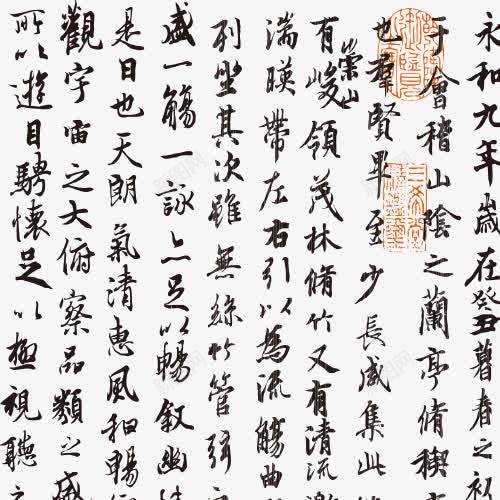 永和九年歲在癸丑暮春之初
于會稽山陰之蘭亭脩稧
也羣賢畢至少長咸集此
有崇山峻領茂林脩竹又有清流激
湍暎帶左右引以為流觴曲
列坐其次雖無絲竹管弦
盛一觴一詠亦足以暢敘幽情
是日也天朗氣清惠風和暢
觀宇宙之大俯察品類之盛
所以遊目騁懷足以極視聽之